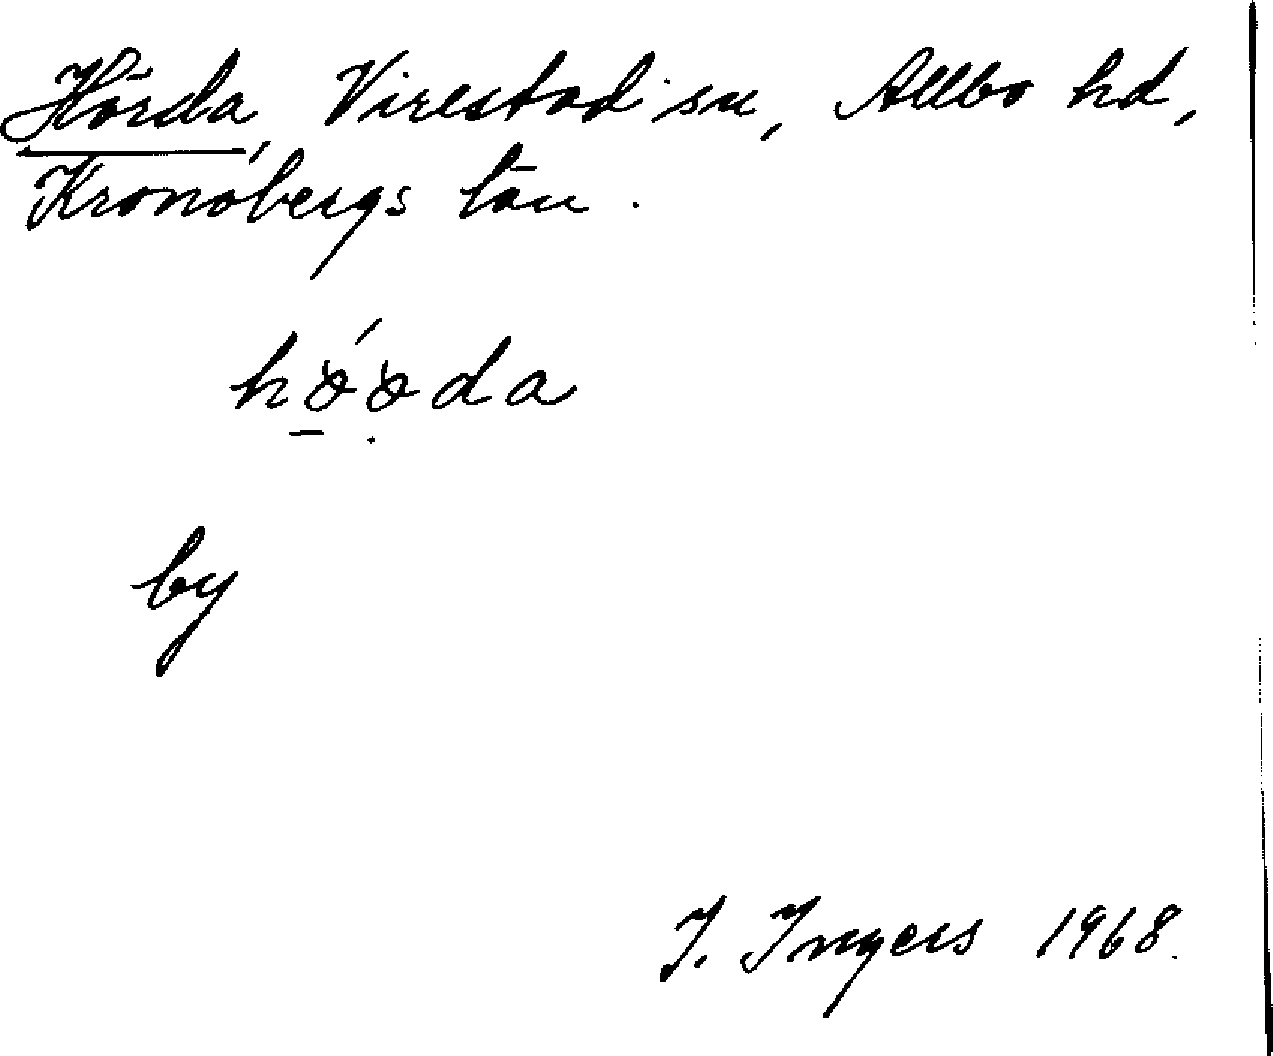 Hörda, Virestad sn, Allbo hd,
Kronobergs län.
hǫ̈́ǫ̈da
by
I. Ingers 1968.